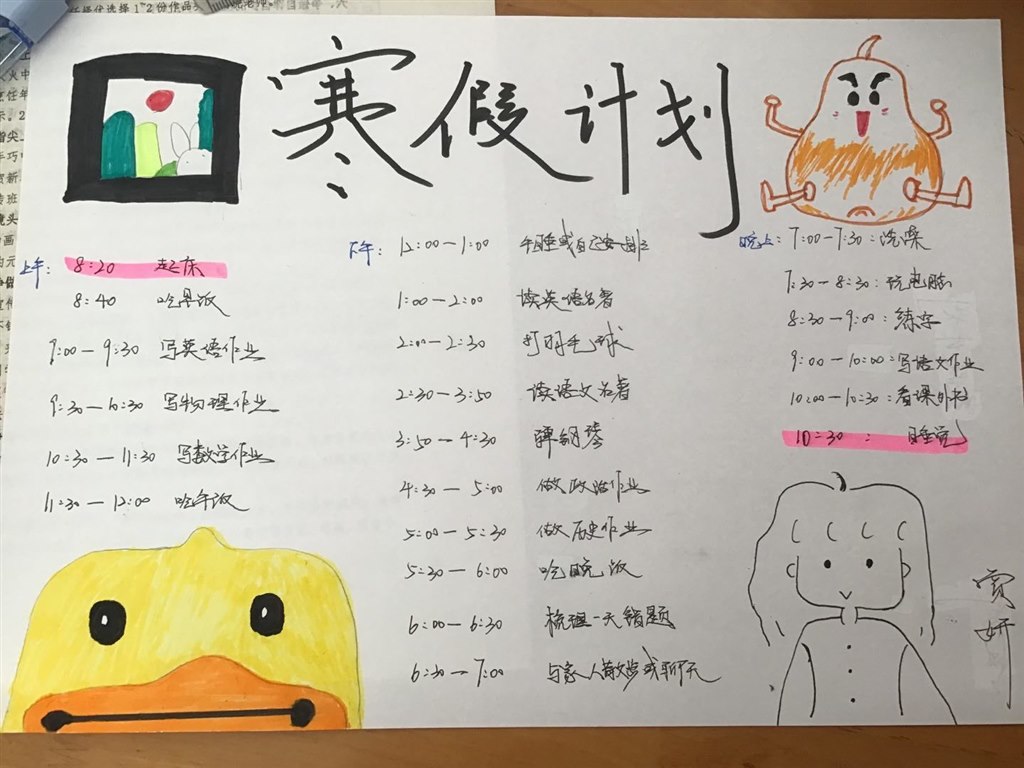 任择优选择1~2份作品
寒假计划
上午:
8:20 起床
8:40 吃早饭
9:00—9:30 写英语作业
9:30—10:30 写物理作业
10:30—11:30 写数学作业
11:30—12:00 吃午饭
下午:
12:00—1:00 午睡或自己安排
1:00—2:00 读英语名著
2:00—2:30 打羽毛球
2:30—3:50 读语文名著
3:50—4:30 弹钢琴
4:30—5:00 做政治作业
5:00—5:30 做历史作业
5:30—6:00 吃晚饭
6:00—6:30 梳理一天错题
6:30—7:00 与家人散步或聊天
晚上: 7:00—7:30: 洗澡
7:30—8:30: 玩电脑
8:30—9:00: 练字
9:00—10:00: 写语文作业
10:00—10:30: 看课外书
10:30: 睡觉
妍